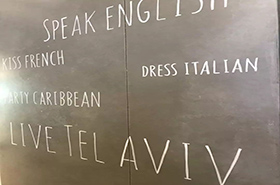 SPEAK ENGLISH
KISS FRENCH
DRESS ITALIAN
PARTY CARIBBEAN
LIVE TEL AVIV